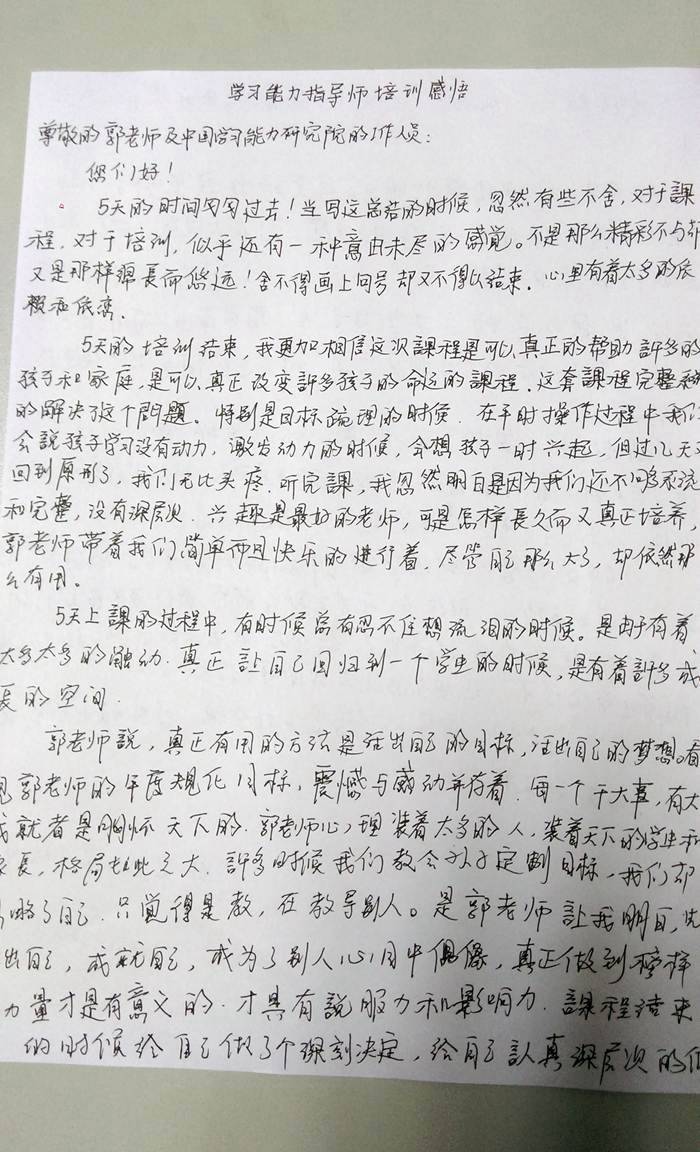 学习能力指导师培训感悟
尊敬的郭老师及中国学习能力研究院的工作人员：
您们好！
5天的时间匆匆过去！当写这总结的时候，忽然有些不舍，对于課
程，对于培训，似乎还有一种意由未尽的感觉。不是那么精彩不与
又是那样漫長而悠远！舍不得画上问号却又不得以结束．心里有着太多的依
赖和依恋．
5天的培训结束，我更加相信这次課程是可以真正的帮助許多的
孩子和家庭，是可以真正改变許多孩子的命运的課程．这套課程完整
的解决了这个問題。特别是目标疏理的时侯．在平时操作过程中我们
会説孩子学习没有动力，激发动力的时候，会想孩子一时兴起，但过几天又
回到原形了，我们无比头疼．听完課，我忽然明白是因为我们还不够系统
和完整，没有深层次．兴趣是最好的老师，可是怎样長久而又真正培养，
郭老师带着我们简单而且快乐的进行着．尽管自己那么大了，却依然那
么有用。
5天上課的过程中，有时候总有忍不住想流泪的时候。是由于有着
太多太多的触动．真正讓自己回归到一个学生的时候，是有着許多成
長的空间．
郭老师説，真正有用的方法是活出自己的目标，活出自己的梦想。看
見郭老师的年度规化目标，震憾与感动并存着．每一个干大事，有大
成就者是胸怀天下的．郭老师心理装着太多的人，装着天下的学生和
家長，格局如此之大．許多时候我们教会孩子定制目标，我们却
忽略了自己．只觉得是教，在教导别人。是郭老师讓我明白，先
出自己，成就自己，成为了别人心目中偶像，真正做到榜样
力量才是有意义的．才具有説服力和影响力．課程结束
的时候给自己做了个深刻决定，给自己認真深层次的